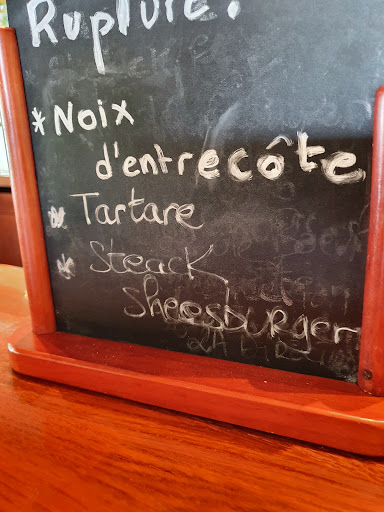 Rupture!
* Noix
d'entrecôte
* Tartare
* Steack
Sheesburger